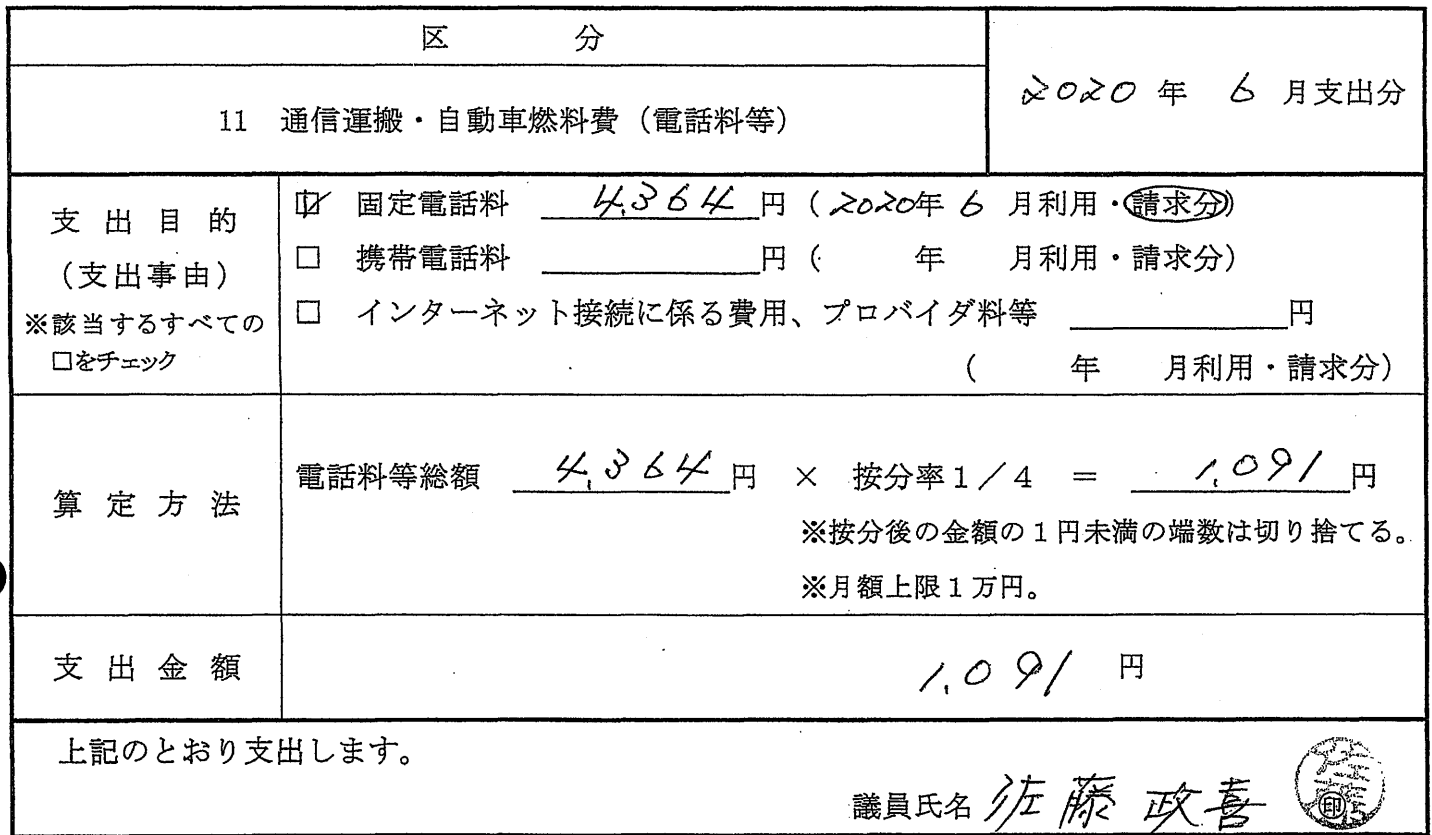 区 分
11 通信運搬・自動車燃料費（電話料等）
2020 年 6 月支出分
支出目的
（支出事由）
※該当するすべての
□をチェック
☑ 固定電話料 4,364 円（2020年 6 月利用・請求分）
□ 携帯電話料 円（ 年 月利用・請求分）
□ インターネット接続に係る費用、プロバイダ料等 円
（ 年 月利用・請求分）
算定方法
電話料等総額 4,364 円 × 按分率1／4 ＝ 1,091 円
※按分後の金額の1円未満の端数は切り捨てる。
※月額上限1万円。
支出金額
1,091 円
上記のとおり支出します。
議員氏名 佐藤 政喜 佐藤 ㊞